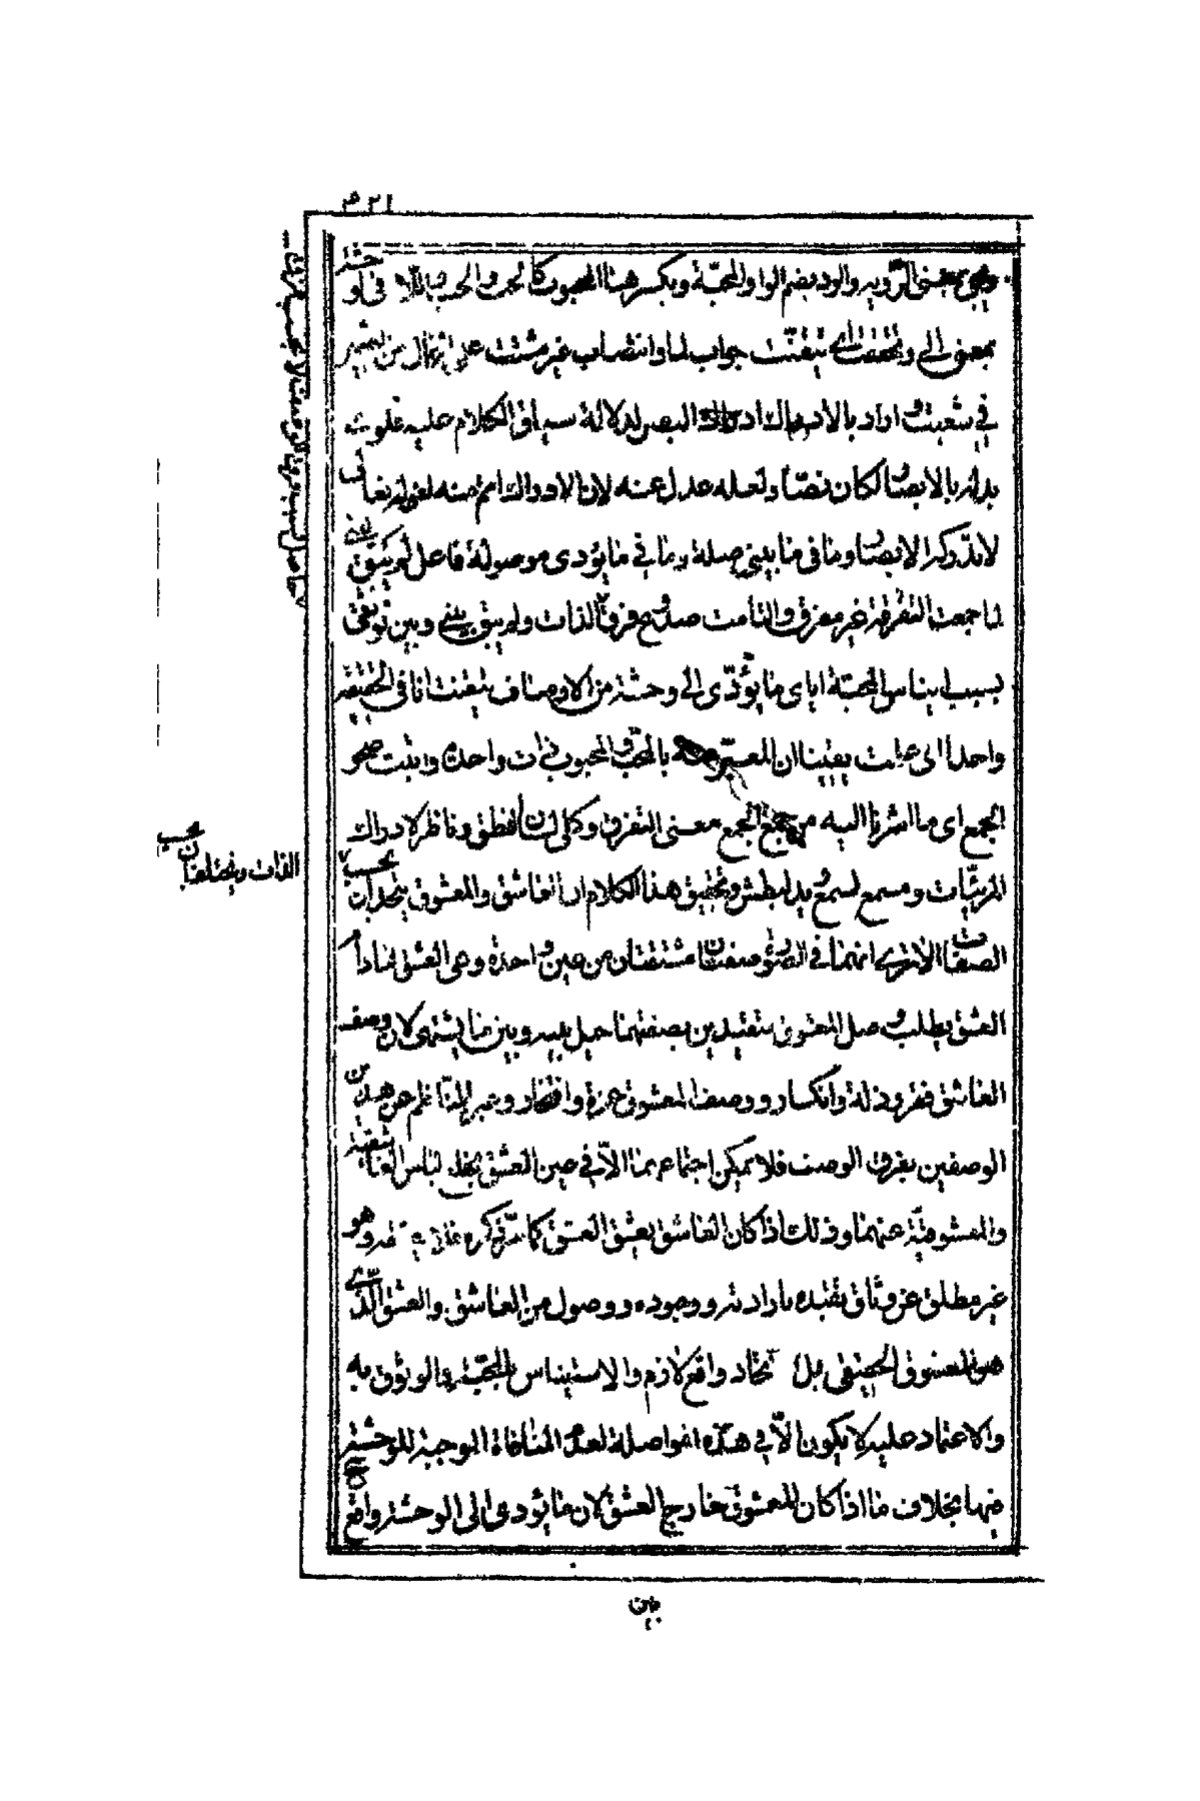 بمعنى الرؤية والود بضم الواو المحبة وبكسرها المحبوب كالحب والحب فى او حشة
بمعنى الى وتحققت اى تيقنت جواب لما وانتصاب غير مشتت على الحال من الضمير
في شعبت واراد بالادراك ادراك البصر لدلالة سياق الكلام عليه فلو تـ
بدله بالابصار لكان نصا ولعله عدل عنه لان الادراك اتم منه لقوله تعالى
لا تدركه الابصار وما فى ما بيني صلة وما في ما يؤدى موصولة فاعل لم يبق يعنى
لما جمعت التفرقة غير مفرق والتأمت صدع فرق الذات ولم يبق بيني وبين توثقى
بسبب ايناس المحبة اياى ما يؤدى الى وحشة من الاوصاف تيقنت انا فى الحقيقة
واحد اى علمت يقينا ان المعبر بالمحب والمحبوب ذات واحدة واثبت صحو
الجمع اى ما اشرنا اليه من جمع الجمع معنى التفرق وكلى لسان لفظق وناظر لادراك
المرئيات ومسمع لسمع يد لبطش وتحقيق هذا الكلام ان العاشق والمعشوق يتحدان بحسب
الذات ويختلفان بحسب
الصفات الا ترى انهما في الصور صفتان مشتقتان من عين واحدة وهى العشق فما دام
العشق يطلب وصل المعشوق متقيدين بصفتهما حيل بينه وبين ما يشتهى لان وصف
العاشق فقر وذلة وانكسار ووصف المعشوق عزة وافتخار وعبر الناظم عن هذين
الوصفين بفرق الوصف فلا يمكن اجتماعهما الا في عين العشق بخلع لباس العاشقية
والمعشوقية عنهما وذلك اذا كان العاشق يعشق العشق كما مر ذكره وهو
غير مطلق عن وثاق تقيده بارادته ووجوده ووصول من العاشق والعشق الذى
هو المعشوق الحقيقى بل اتحاد واقع لازم والاستيناس بالمحبة والوثوق به
والاعتماد عليه لا يكون الا في هذه المواصلة لعدم المنافاة الموجبة للوحشة
فيها بخلاف ما اذا كان للمعشوق خارج العشق لان ما يؤدى الى الوحشة واقع ح
بين